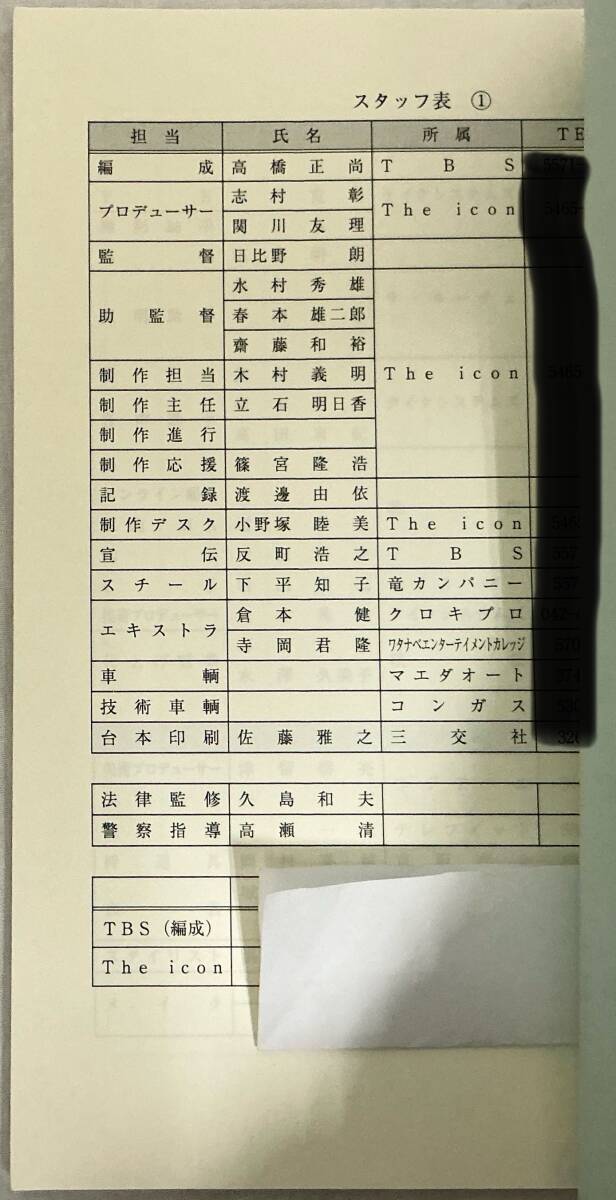 スタッフ表 ①
担当 氏名 所属 TE
編成 高橋正尚 TBS
プロデューサー 志村彰 The icon
関川友理
監督 日比野朗
助監督 水村秀雄 The icon
春本雄二郎
齋藤和裕
制作担当 木村義明
制作主任 立石明日香
制作進行
制作応援 篠宮隆浩
記録 渡邊由依
制作デスク 小野塚睦美 The icon
宣伝 反町浩之 TBS
スチール 下平知子 竜カンパニー
エキストラ 倉本健 クロキプロ
寺岡君隆 ワタナベエンターテイメントカレッジ
車輌 マエダオート
技術車輌 コンガス
台本印刷 佐藤雅之 三交社
法律監修 久島和夫
警察指導 高瀬清
TBS(編成)
The icon